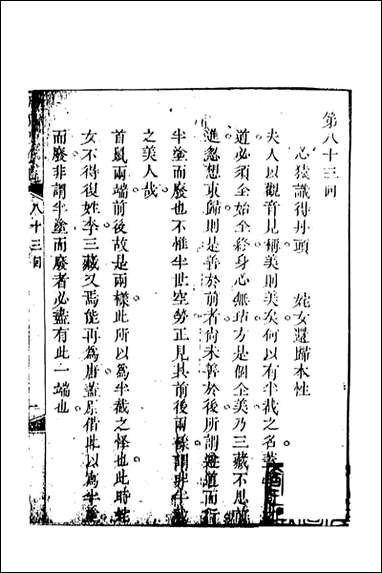 第八十三回
心猿識得丹頭　姹女還歸本性
夫人以觀音見稱美則美矣何以有半截之名蓋
道必須全始全終身心無玷方是個全美乃三藏不思前
進忽想東歸則是善於前者尚未善於後所謂遵道而行
半塗而廢也不惟半世空勞正見其前後兩樣謂非半截
之美人哉
首鼠兩端前後故是兩樣此所以為半截之怪也此時姹
女不得復姓李三藏又焉能再為唐蓋原借此以為半塗
而廢非謂半塗而廢者必盡有此一端也
八十三回